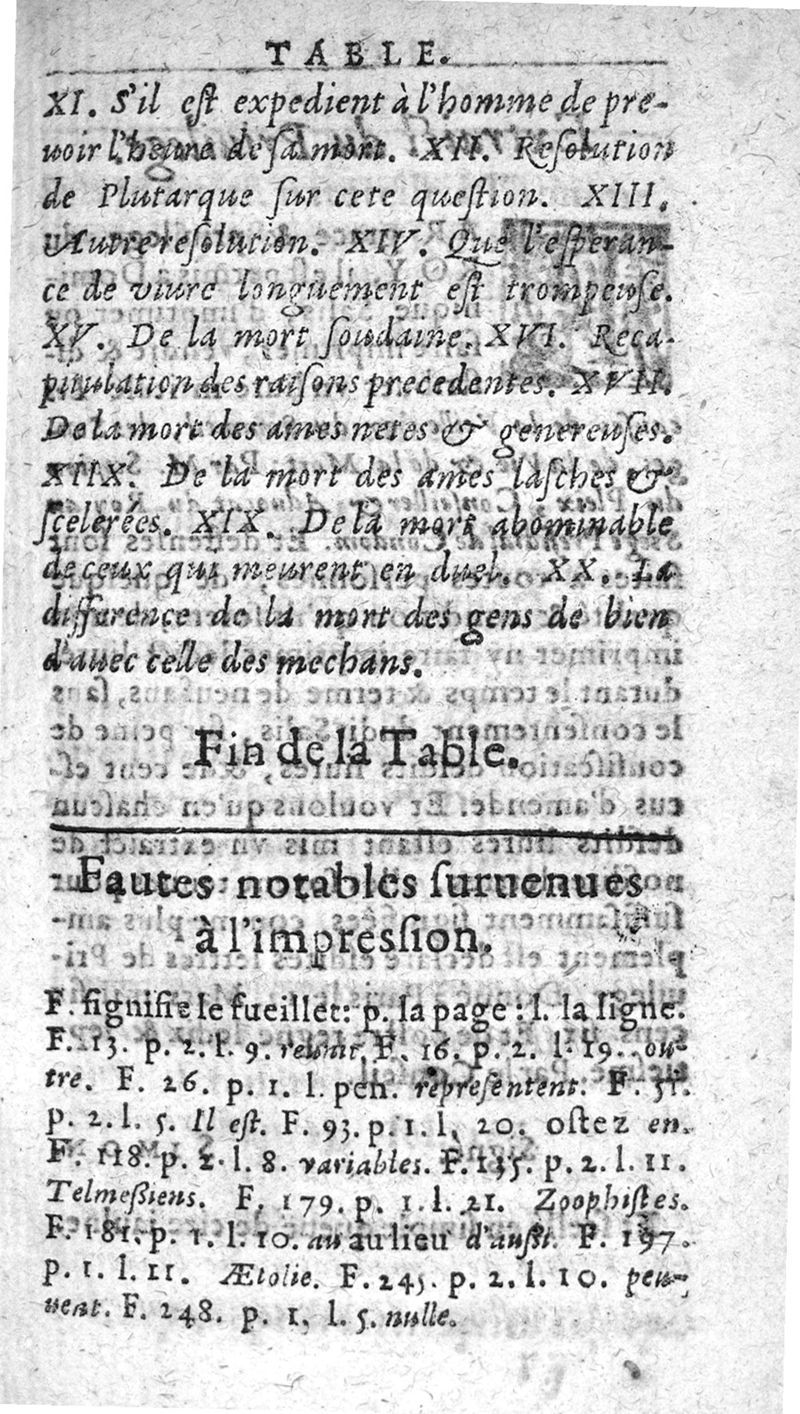 TABLE.
XI. S'il eſt expedient à l'homme de pre-
uoir l'heure de ſa mort. XII. Reſolution
de Plutarque ſur cete queſtion. XIII.
Autre reſolution. XIV. Que l'eſperan-
ce de viure longuement eſt trompeuſe.
XV. De la mort ſoudaine. XVI. Reca-
pitulation des raiſons precedentes. XVII.
De la mort des ames netes & genereuſes.
XIIX. De la mort des ames laſches &
ſcelerées. XIX. De la mort abominable
de ceux qui meurent en duel. XX. La
difference de la mort des gens de bien
d'auec celle des mechans.
Fin de la Table.
Fautes notables ſuruenues
à l'impreſſion.
F. ſignifie le fueillet: p. la page: l. la ligne.
F. 13. p. 2. l. 9. reünit. F. 16. p. 2. l. 19. ou-
tre. F. 26. p. 1. l. pen. repreſentent. F. 51.
p. 2. l. 5. Il eſt. F. 93. p. 1. l. 20. oſtez en.
F. 118. p. 2. l. 8. variables. F. 135. p. 2. l. 11.
Telmeßiens. F. 179. p. 1. l. 21. Zoophiſtes.
F. 181. p. 1. l. 10. au au lieu d'auſſi. F. 197.
p. 1. l. 11. Ætolie. F. 245. p. 2. l. 10. peu-
uent. F. 248. p. 1. l. 5. nulle.